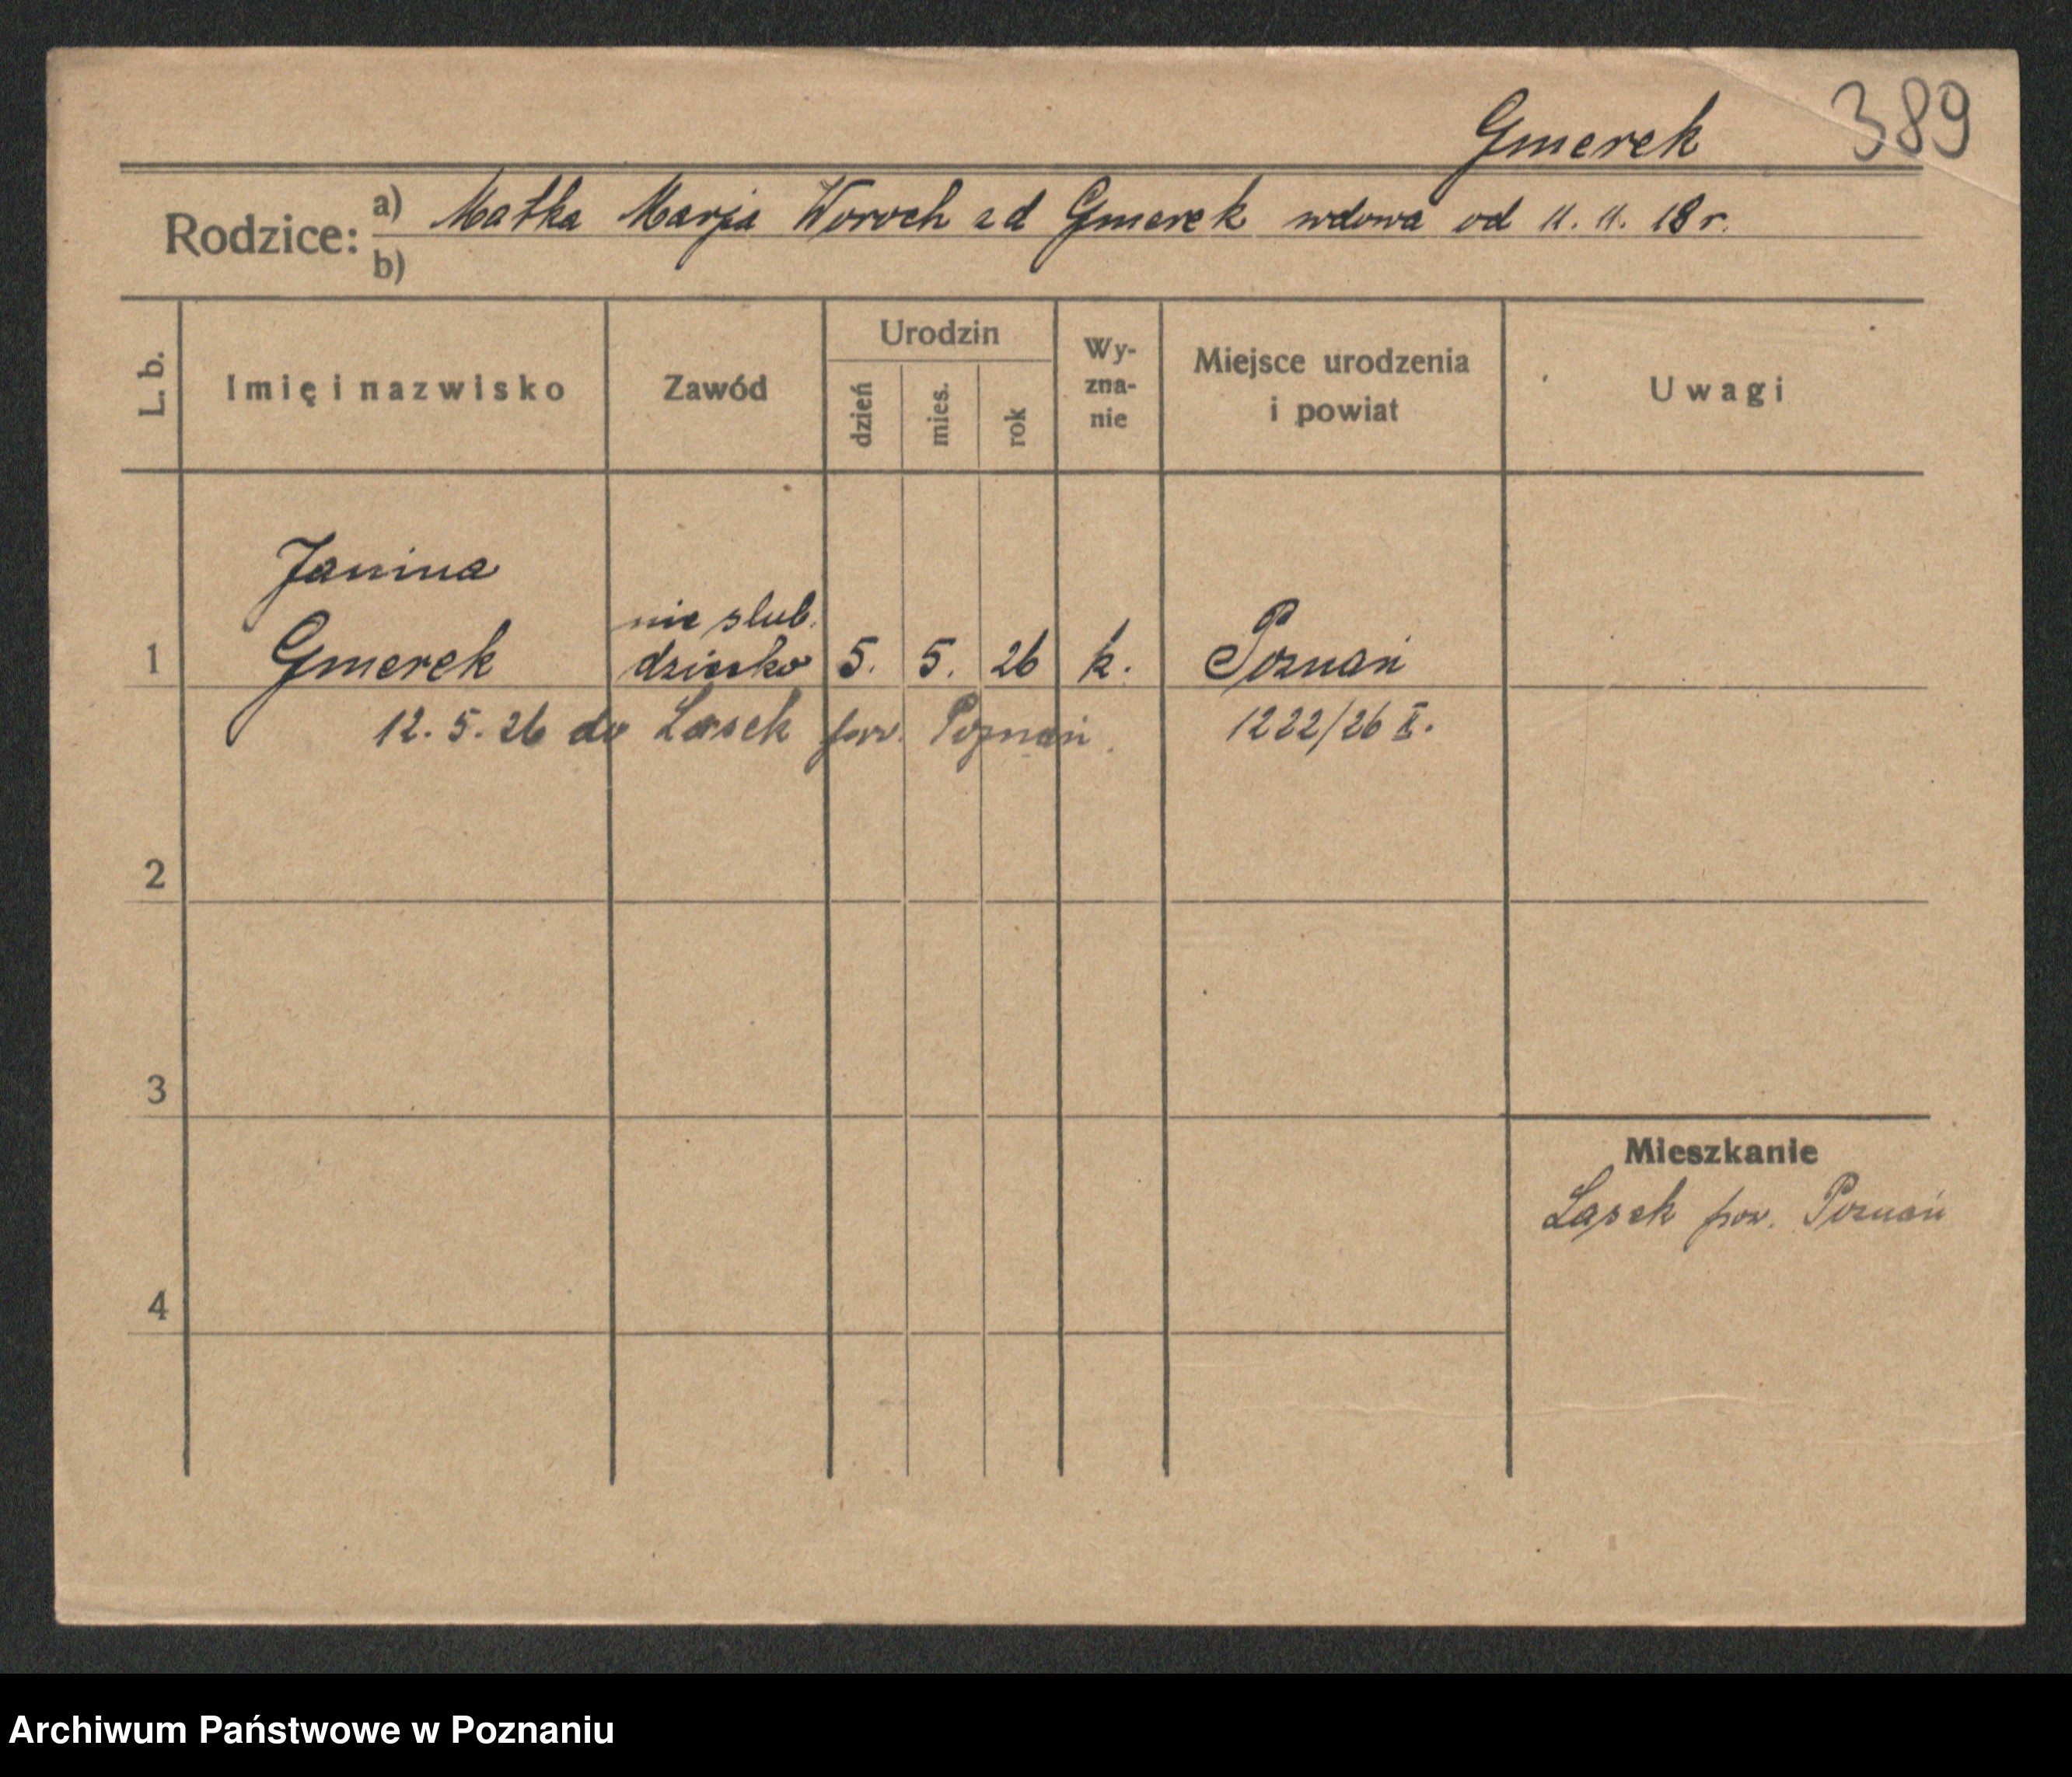 Gmerek 389
Rodzice: a) Matka Marja Woroch zd Gmerek wdowa od 11. 11. 18 r.
b)
L. b. Imię i nazwisko Zawód Urodzin dzień mies. rok Wy-zna-nie Miejsce urodzenia i powiat Uwagi
Janina
nie slub.
1 Gmerek dziecko 5. 5. 26 k. Poznań
12. 5. 26 do Lasek pow. Poznań. 1222/26 II.
2
3
Mieszkanie
Lasek pow. Poznań
4
Archiwum Państwowe w Poznaniu